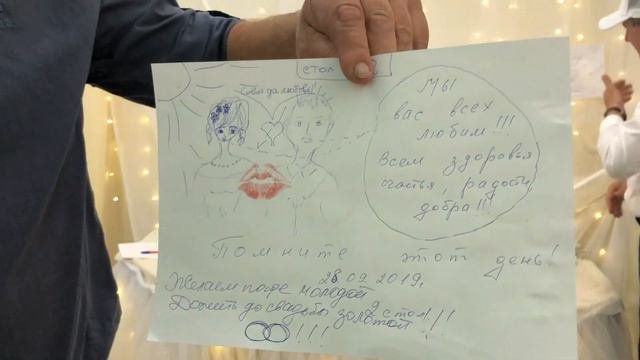 стол
Совет да любовь!
Мы
вас всех
любим!!!
Всем здоровья
счастья, радости,
добра!!!
Помните этот день!
28.09.2019г.
Желаем паре молодой
Дожить до свадьбы золотой!!!
2 стол!!
!!!